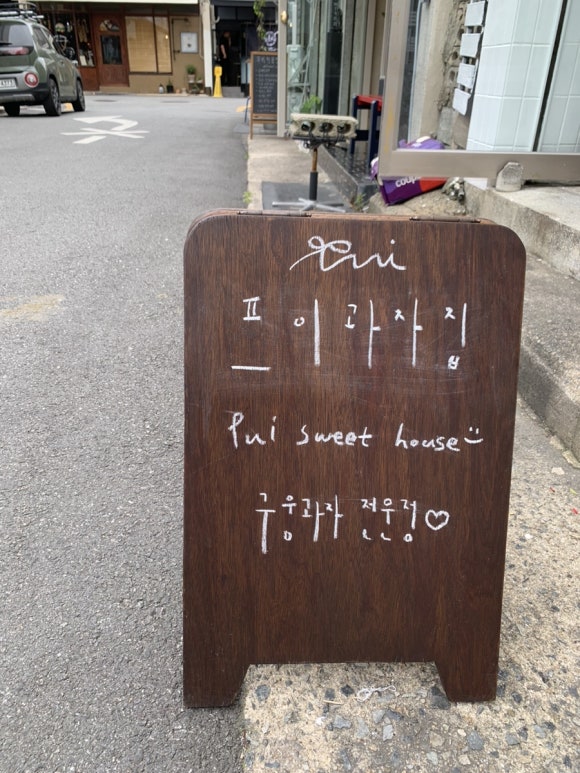 Pui
프이과자집
Pui sweet house :)
구움과자 전문점♡
coup